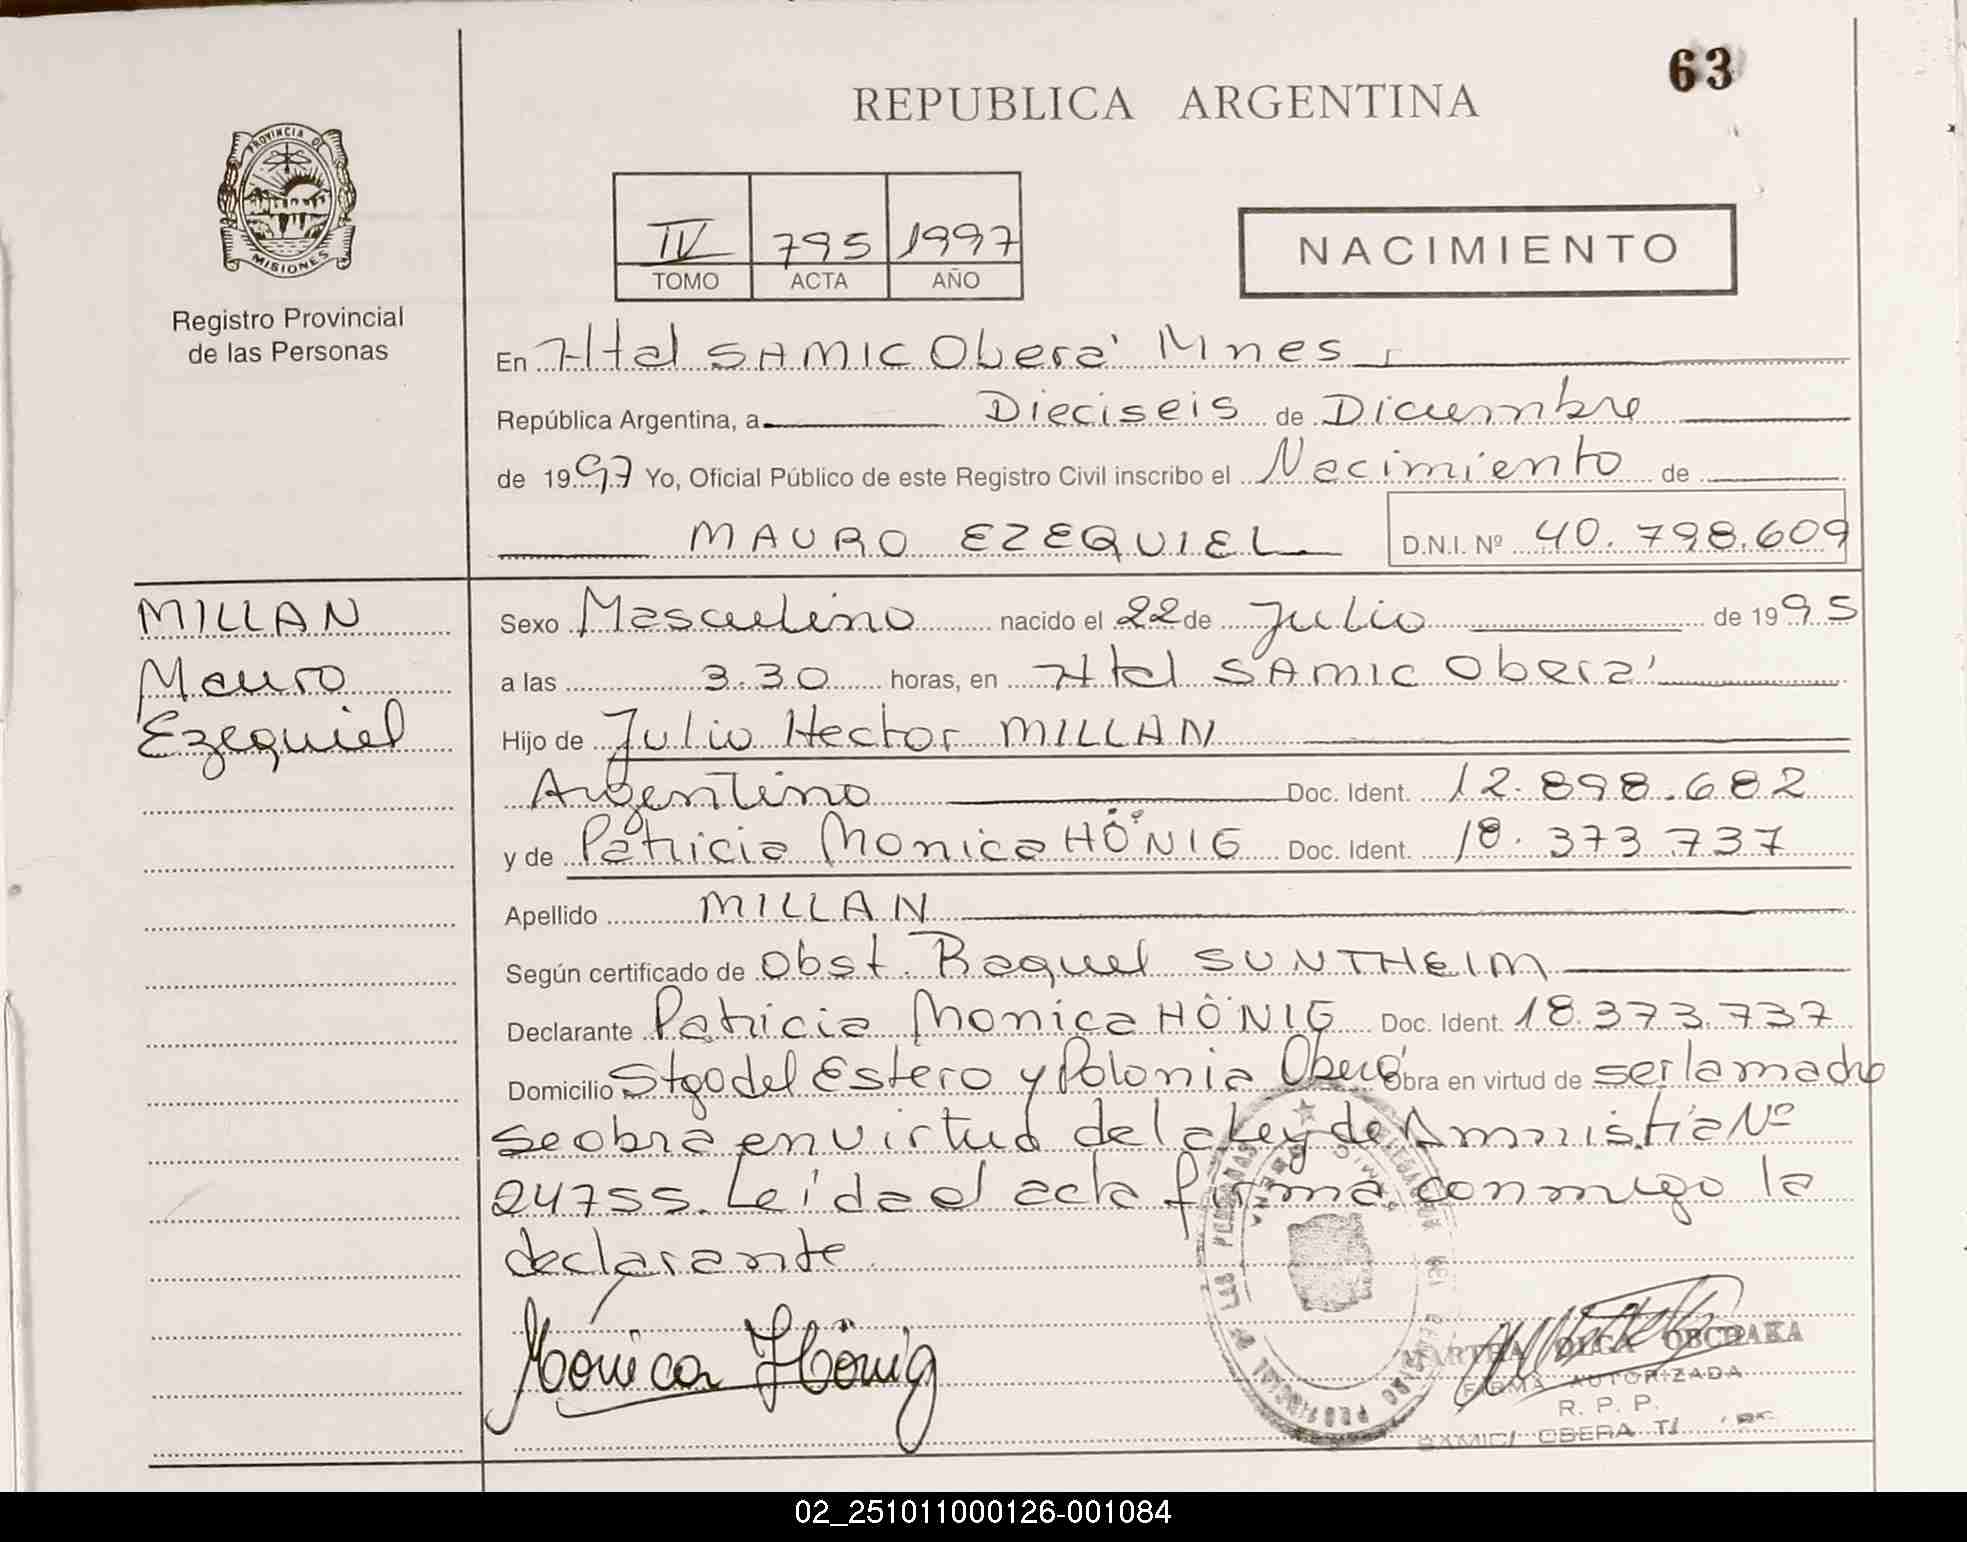 63
REPUBLICA ARGENTINA
PROVINCIA DE
MISIONES
Registro Provincial
de las Personas
IV 795 1997
TOMO ACTA AÑO
NACIMIENTO
En Htal SAMIC Oberá Mnes
República Argentina, a Dieciseis de Diciembre
de 1997 Yo, Oficial Público de este Registro Civil inscribo el Nacimiento de
MAURO EZEQUIEL D.N.I. Nº 40.798.609
MILLAN
Mauro
Ezequiel
Sexo Masculino nacido el 22 de Julio de 1995
a las 3.30 horas, en Htal SAMIC Oberá
Hijo de Julio Hector MILLAN
Argentino Doc. Ident. 12.898.682
y de Patricia Monica HÖNIG Doc. Ident. 18.373.737
Apellido MILLAN
Según certificado de Obst. Raquel SUNTHEIM
Declarante Patricia Monica HÖNIG Doc. Ident. 18.373.737
Domicilio Stgo del Estero y Polonia Oberá Obra en virtud de ser la madre
se obra en virtud de la Ley de Amnistia Nº
24755. Leida el acta firma conmigo la
declarante
Mónica Hönig
MARTHA OLGA
FIRMA AUTORIZADA
R. P. P.
SAMIC/ OBERA
02_251011000126-001084